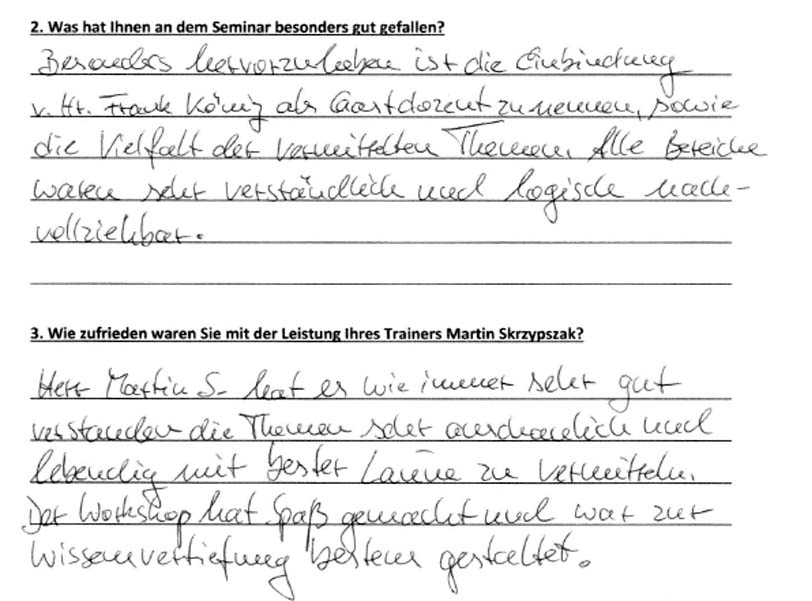 2. Was hat Ihnen an dem Seminar besonders gut gefallen?
Besonders hervorzuheben ist die Einbindung
v. Hr. Frank König als Gastdozent zu nennen, sowie
die Vielfalt der vermittelten Themen. Alle Bereiche
waren sehr verständlich und logisch nach-
vollziehbar.
3. Wie zufrieden waren Sie mit der Leistung Ihres Trainers Martin Skrzypszak?
Herr Martin S. hat es wie immer sehr gut
verstanden die Themen sehr anschaulich und
lebendig mit bester Laune zu vermitteln.
Der Workshop hat Spaß gemacht und war zur
Wissenvertiefung bestens gestaltet.